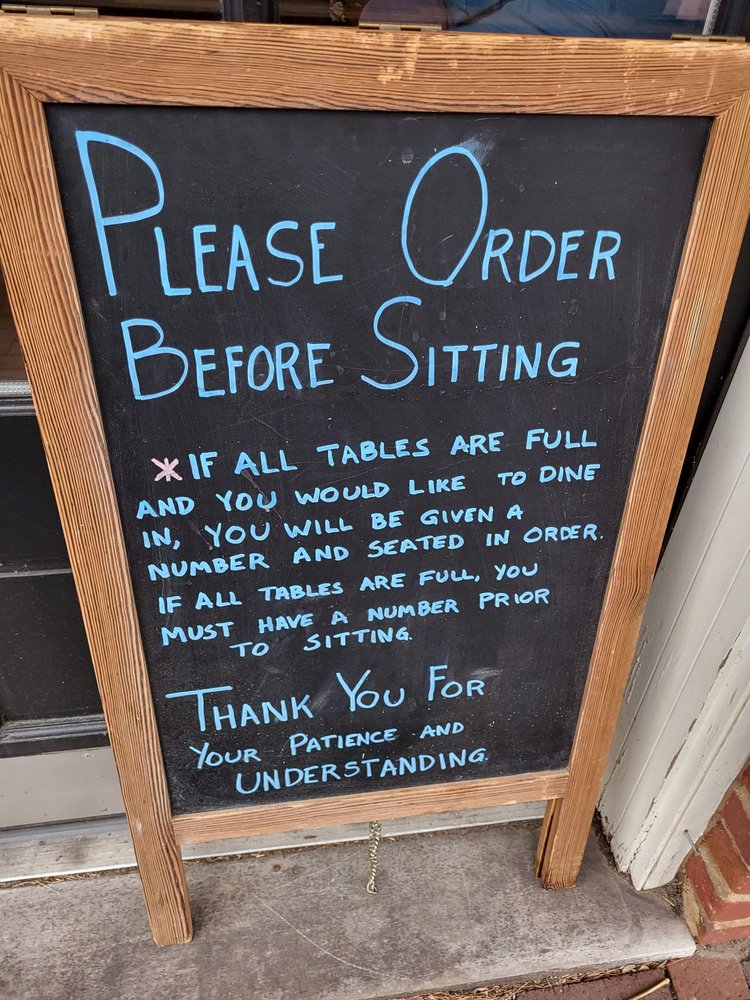 PLEASE ORDER
BEFORE SITTING
*IF ALL TABLES ARE FULL
AND YOU WOULD LIKE TO DINE
IN, YOU WILL BE GIVEN A
NUMBER AND SEATED IN ORDER.
IF ALL TABLES ARE FULL, YOU
MUST HAVE A NUMBER PRIOR
TO SITTING.
THANK YOU FOR
YOUR PATIENCE AND
UNDERSTANDING.